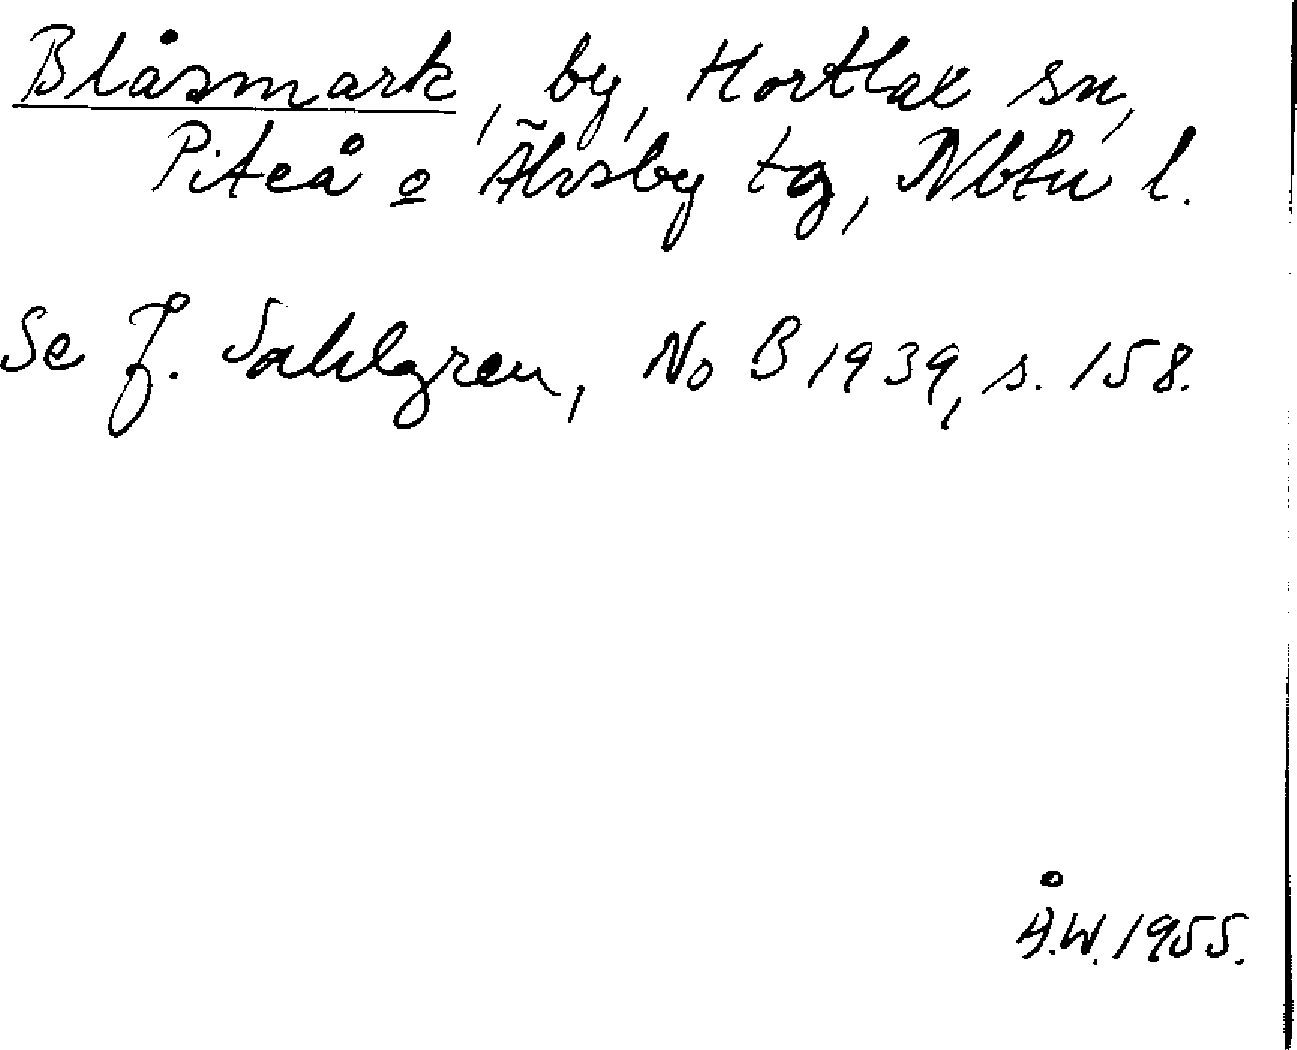 Blåsmark, by, Hortlax sn,
Piteå o Älvsby tg, Nbtn l.
Se J. Sahlgren, NoB 1939, s. 158.
Å.W. 1955.